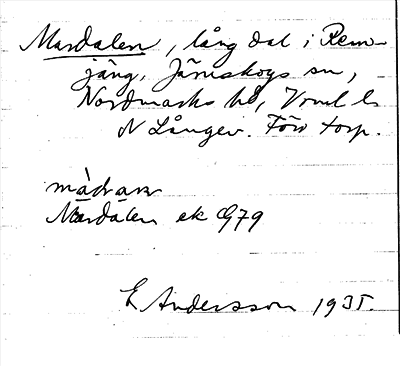 Mardalen, lång dal i Rem-
jäng, Järnskogs sn,
Nordmarks hd, Vrml l.
N Långev. Förr torp.
Mardalen ek G79
E Andersson 1935.